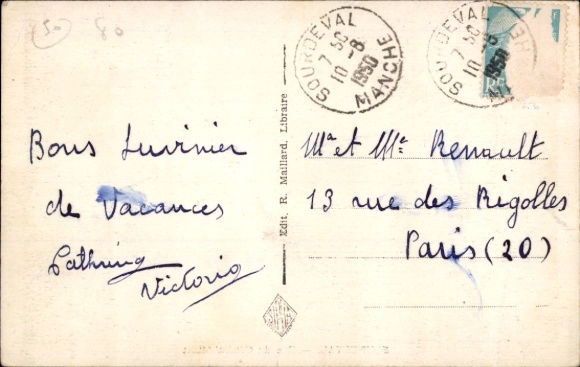 50 80
SOURDEVAL
MANCHE
7 30
10 - 8
1950
SOURDEVAL
MANCHE
7 30
10 - 8
1950
Bons Suvinier
de Vacances
Victorio
Edit. R. Maillard, Libraire
Mr et Me Renault
13 rue des Rigolles
Paris (20)